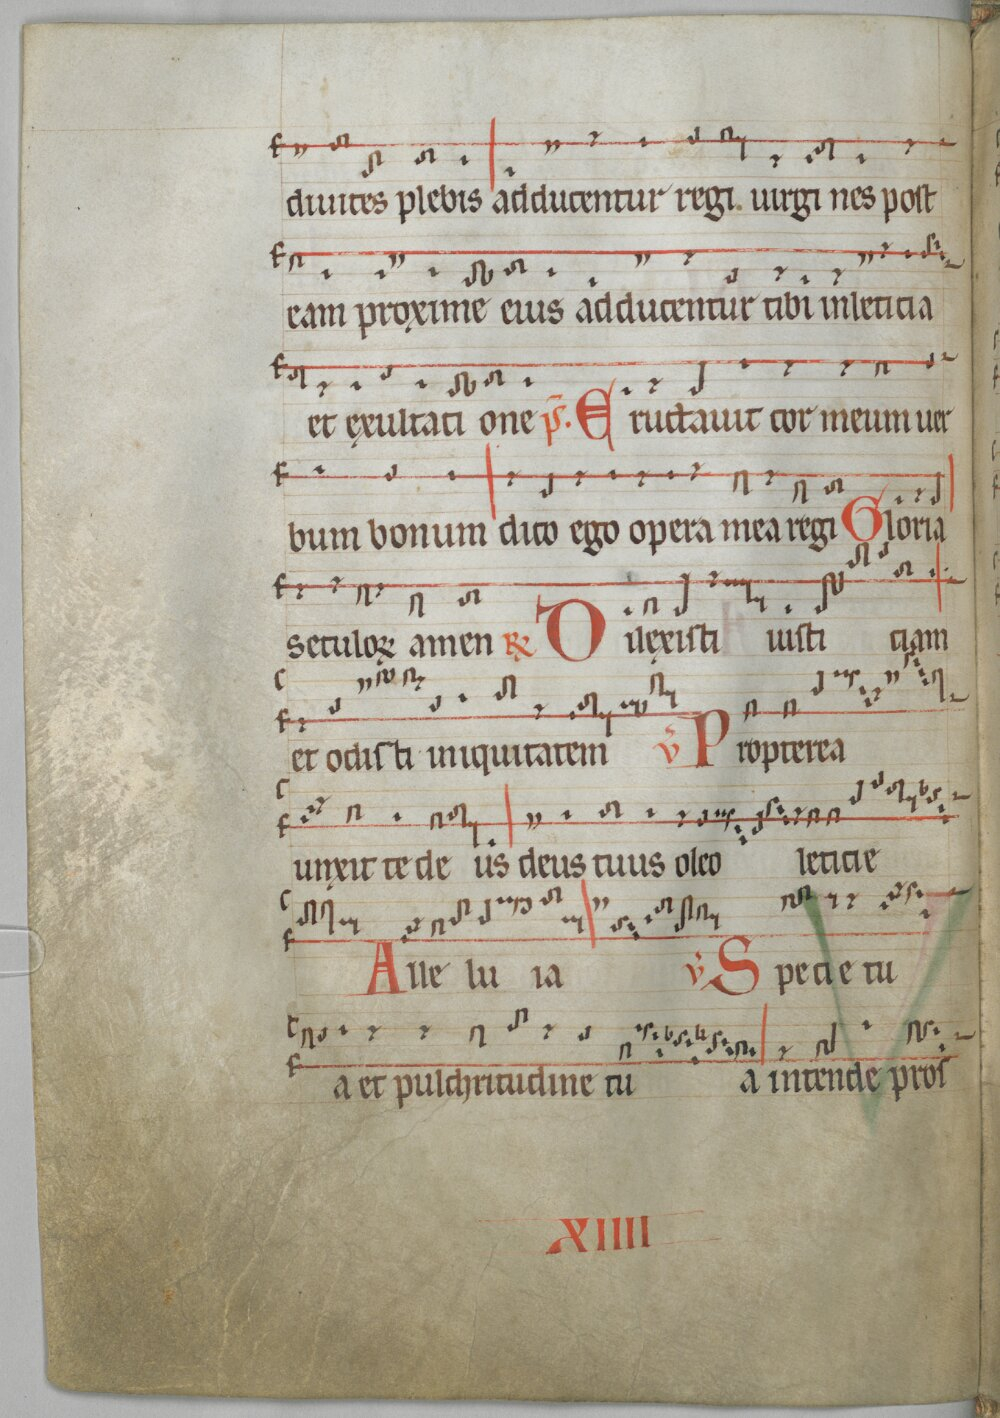 diuites plebis adducentur regi. uirgi nes post
eam proxime eius adducentur tibi inleticia
et exultati one ps̄. E ructauit cor meum uer
bum bonum dico ego opera mea regi Gloria
seculoꝝ amen ℟ D ilexisti iusti ciam
et odisti iniquitatem v̄ P ropterea
unxit te de us deus tuus oleo leticie
A lle lu ia v̄ S pecie tu
a et pulchritudine tu a intende pros
XIIII